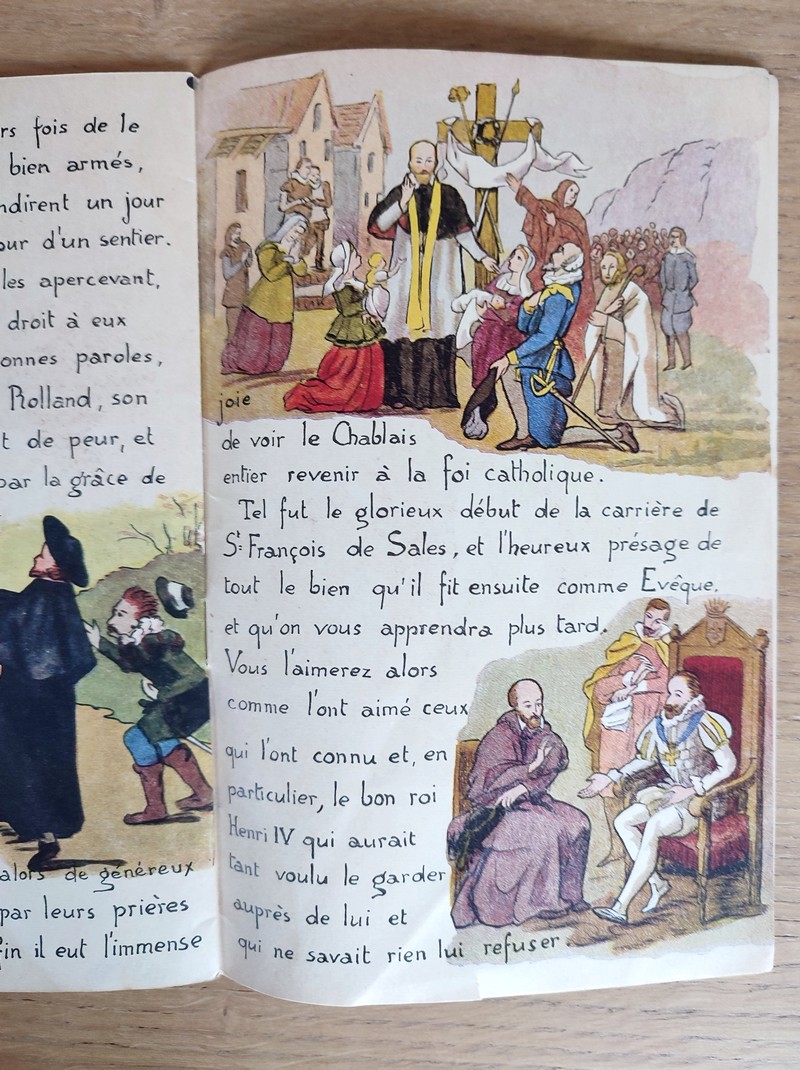 rs fois de le
bien armés,
ndirent un jour
our d'un sentier.
les apercevant,
droit à eux
onnes paroles,
Rolland, son
t de peur, et
par la grâce de
alors de généreux
par leurs prières
fin il eut l'immense
joie
de voir le Chablais
entier revenir à la foi catholique.
Tel fut le glorieux début de la carrière de
St François de Sales, et l'heureux présage de
tout le bien qu'il fit ensuite comme Evêque,
et qu'on vous apprendra plus tard.
Vous l'aimerez alors
comme l'ont aimé ceux
qui l'ont connu et, en
particulier, le bon roi
Henri IV qui aurait
tant voulu le garder
auprès de lui et
qui ne savait rien lui refuser.